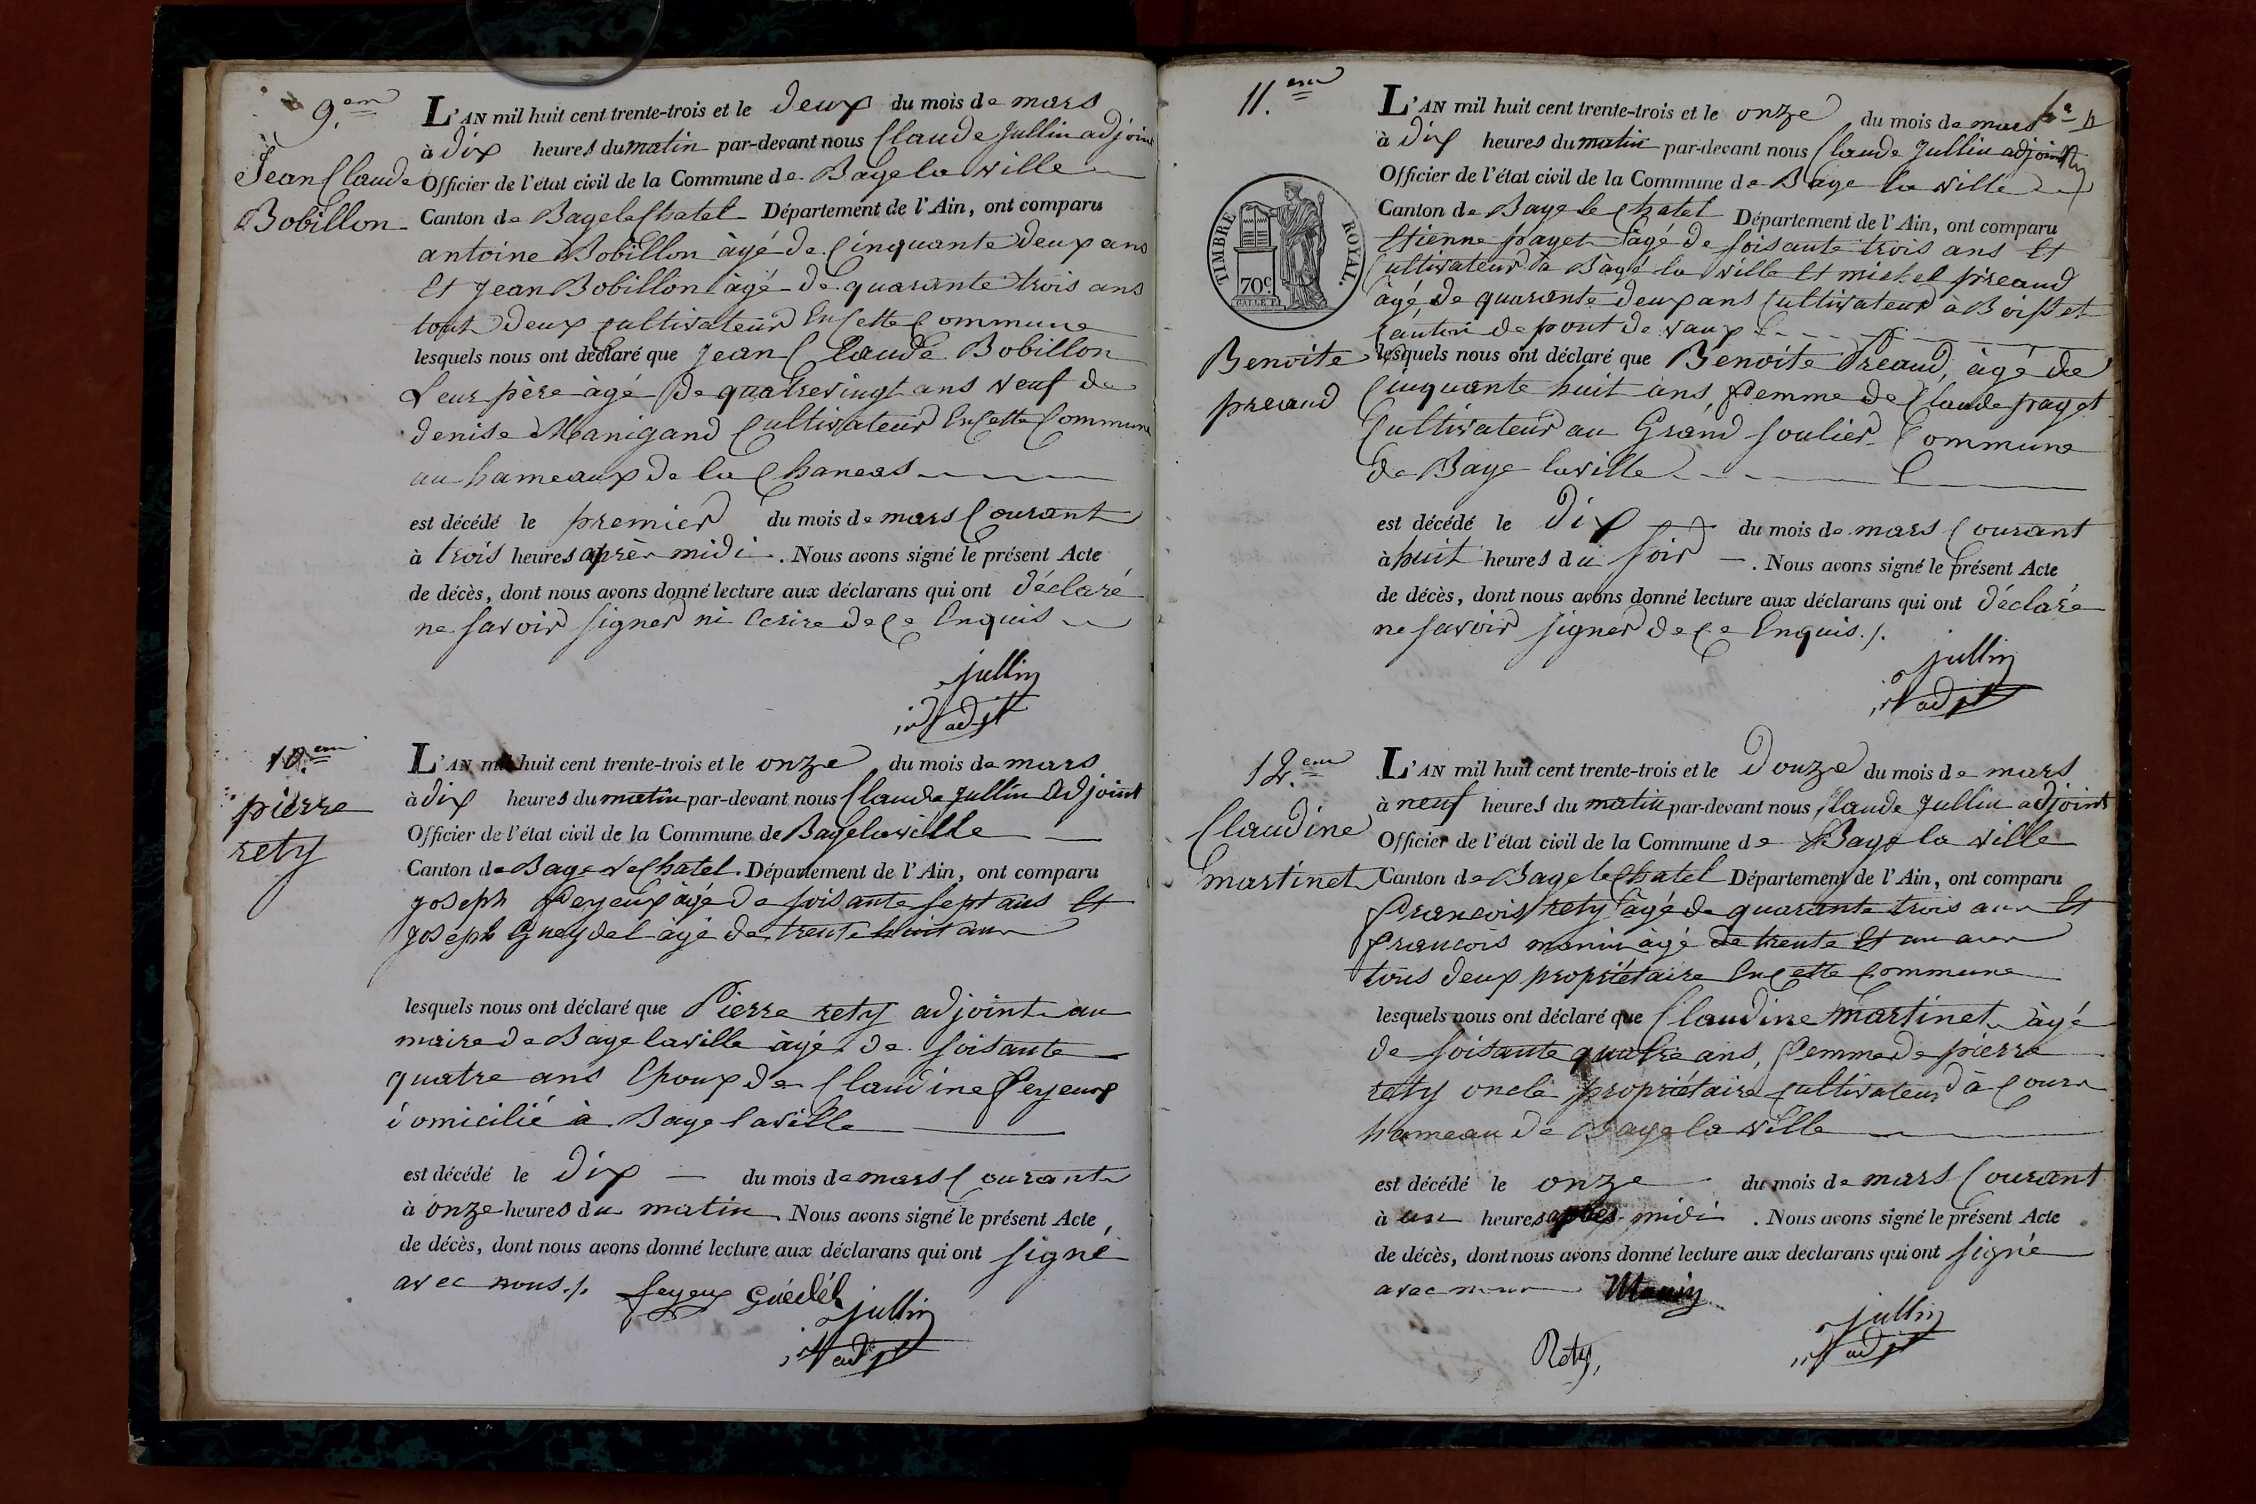 9.em
Jean Claude
Bobillon
L'AN mil huit cent trente-trois et le deux du mois de mars
à dix heures du matin par-devant nous Claude Jullin adjoint
Officier de l'état civil de la Commune de Bage la ville
Canton de Bage le Chatel Département de l'Ain, ont comparu
antoine Bobillon àgé de Cinquante deux ans
Et Jean Bobillon àgé de quarante trois ans
tout deux cultivateur En Cette Commune
lesquels nous ont déclaré que Jean Claude Bobillon
Leur père àgé de quatrevingt ans veuf de
denise Manigand Cultivateur En Cette Commune
au hameaux de la Chaneas
est décédé le premier du mois de mars Courant
à trois heures après midi. Nous avons signé le présent Acte
de décès, dont nous avons donné lecture aux déclarans qui ont déclaré
ne savoir signer ni Ecrire de Ce Enquis
jullin
adjt
10.em
pierre
rety
L'AN mil huit cent trente-trois et le onze du mois de mars
à dix heures du matin par-devant nous Claude Jullin adjoint
Officier de l'état civil de la Commune de Bage la ville
Canton de Bage Le Chatel. Département de l'Ain, ont comparu
joseph feyeux àgé de soisante sept ans Et
joseph Gueydel àgé de trente huit ans
lesquels nous ont déclaré que Pierre rety adjoint au
maire de Bage laville àgé de soisante
quatre ans Epoux de Claudine feyeux
domicilié à Bage laville
est décédé le dix du mois de mars Courant
à onze heures du matin. Nous avons signé le présent Acte,
de décès, dont nous avons donné lecture aux déclarans qui ont signé
avec nous./.
feyeux Guédél
jullin
adjt
11.em
Benoite
preaud
TIMBRE ROYAL.
70c.
L'AN mil huit cent trente-trois et le onze du mois de mars
à dix heures du matin par-devant nous Claude Jullin adjoint
Officier de l'état civil de la Commune de Bage la ville
Canton de Bage le Chatel Département de l'Ain, ont comparu
Etienne paget àgé de soisante trois ans Et
Cultivateur à Bàgé la ville Et michel preaud
àgé de quarante deux ans Cultivateur à Boisset
Canton de pont de vaux
lesquels nous ont déclaré que Benoite Preaud, àgé de
Cinquante huit ans, femme de Claude paget
Cultivateur au Grand soulier Commune
de Bage laville
est décédé le dix du mois de mars Courant
à huit heures du soir. Nous avons signé le présent Acte
de décès, dont nous avons donné lecture aux déclarans qui ont déclaré
ne savoir signer de Ce Enquis./.
jullin
adjt
12.em
Claudine
martinet
L'AN mil huit cent trente-trois et le Douze du mois de mars
à neuf heures du matin par-devant nous Claude Jullin adjoint
Officier de l'état civil de la Commune de Bage la ville
Canton de Bage le Chatel Département de l'Ain, ont comparu
francois rety àgé de quarante trois ans Et
francois manin àgé de trente Et un ans
tous deux propriétaire En Cette Commune
lesquels nous ont déclaré que Claudine Martinet àgé
de soisante quatre ans, femme de pierre
rety oncle propriétaire Cultivateur à Cours
hameau de Bage la ville
est décédé le onze du mois de mars Courant
à un heures après midi. Nous avons signé le présent Acte
de décès, dont nous avons donné lecture aux déclarans qui ont signé
avec nous
Manin
Rety,
jullin
adjt